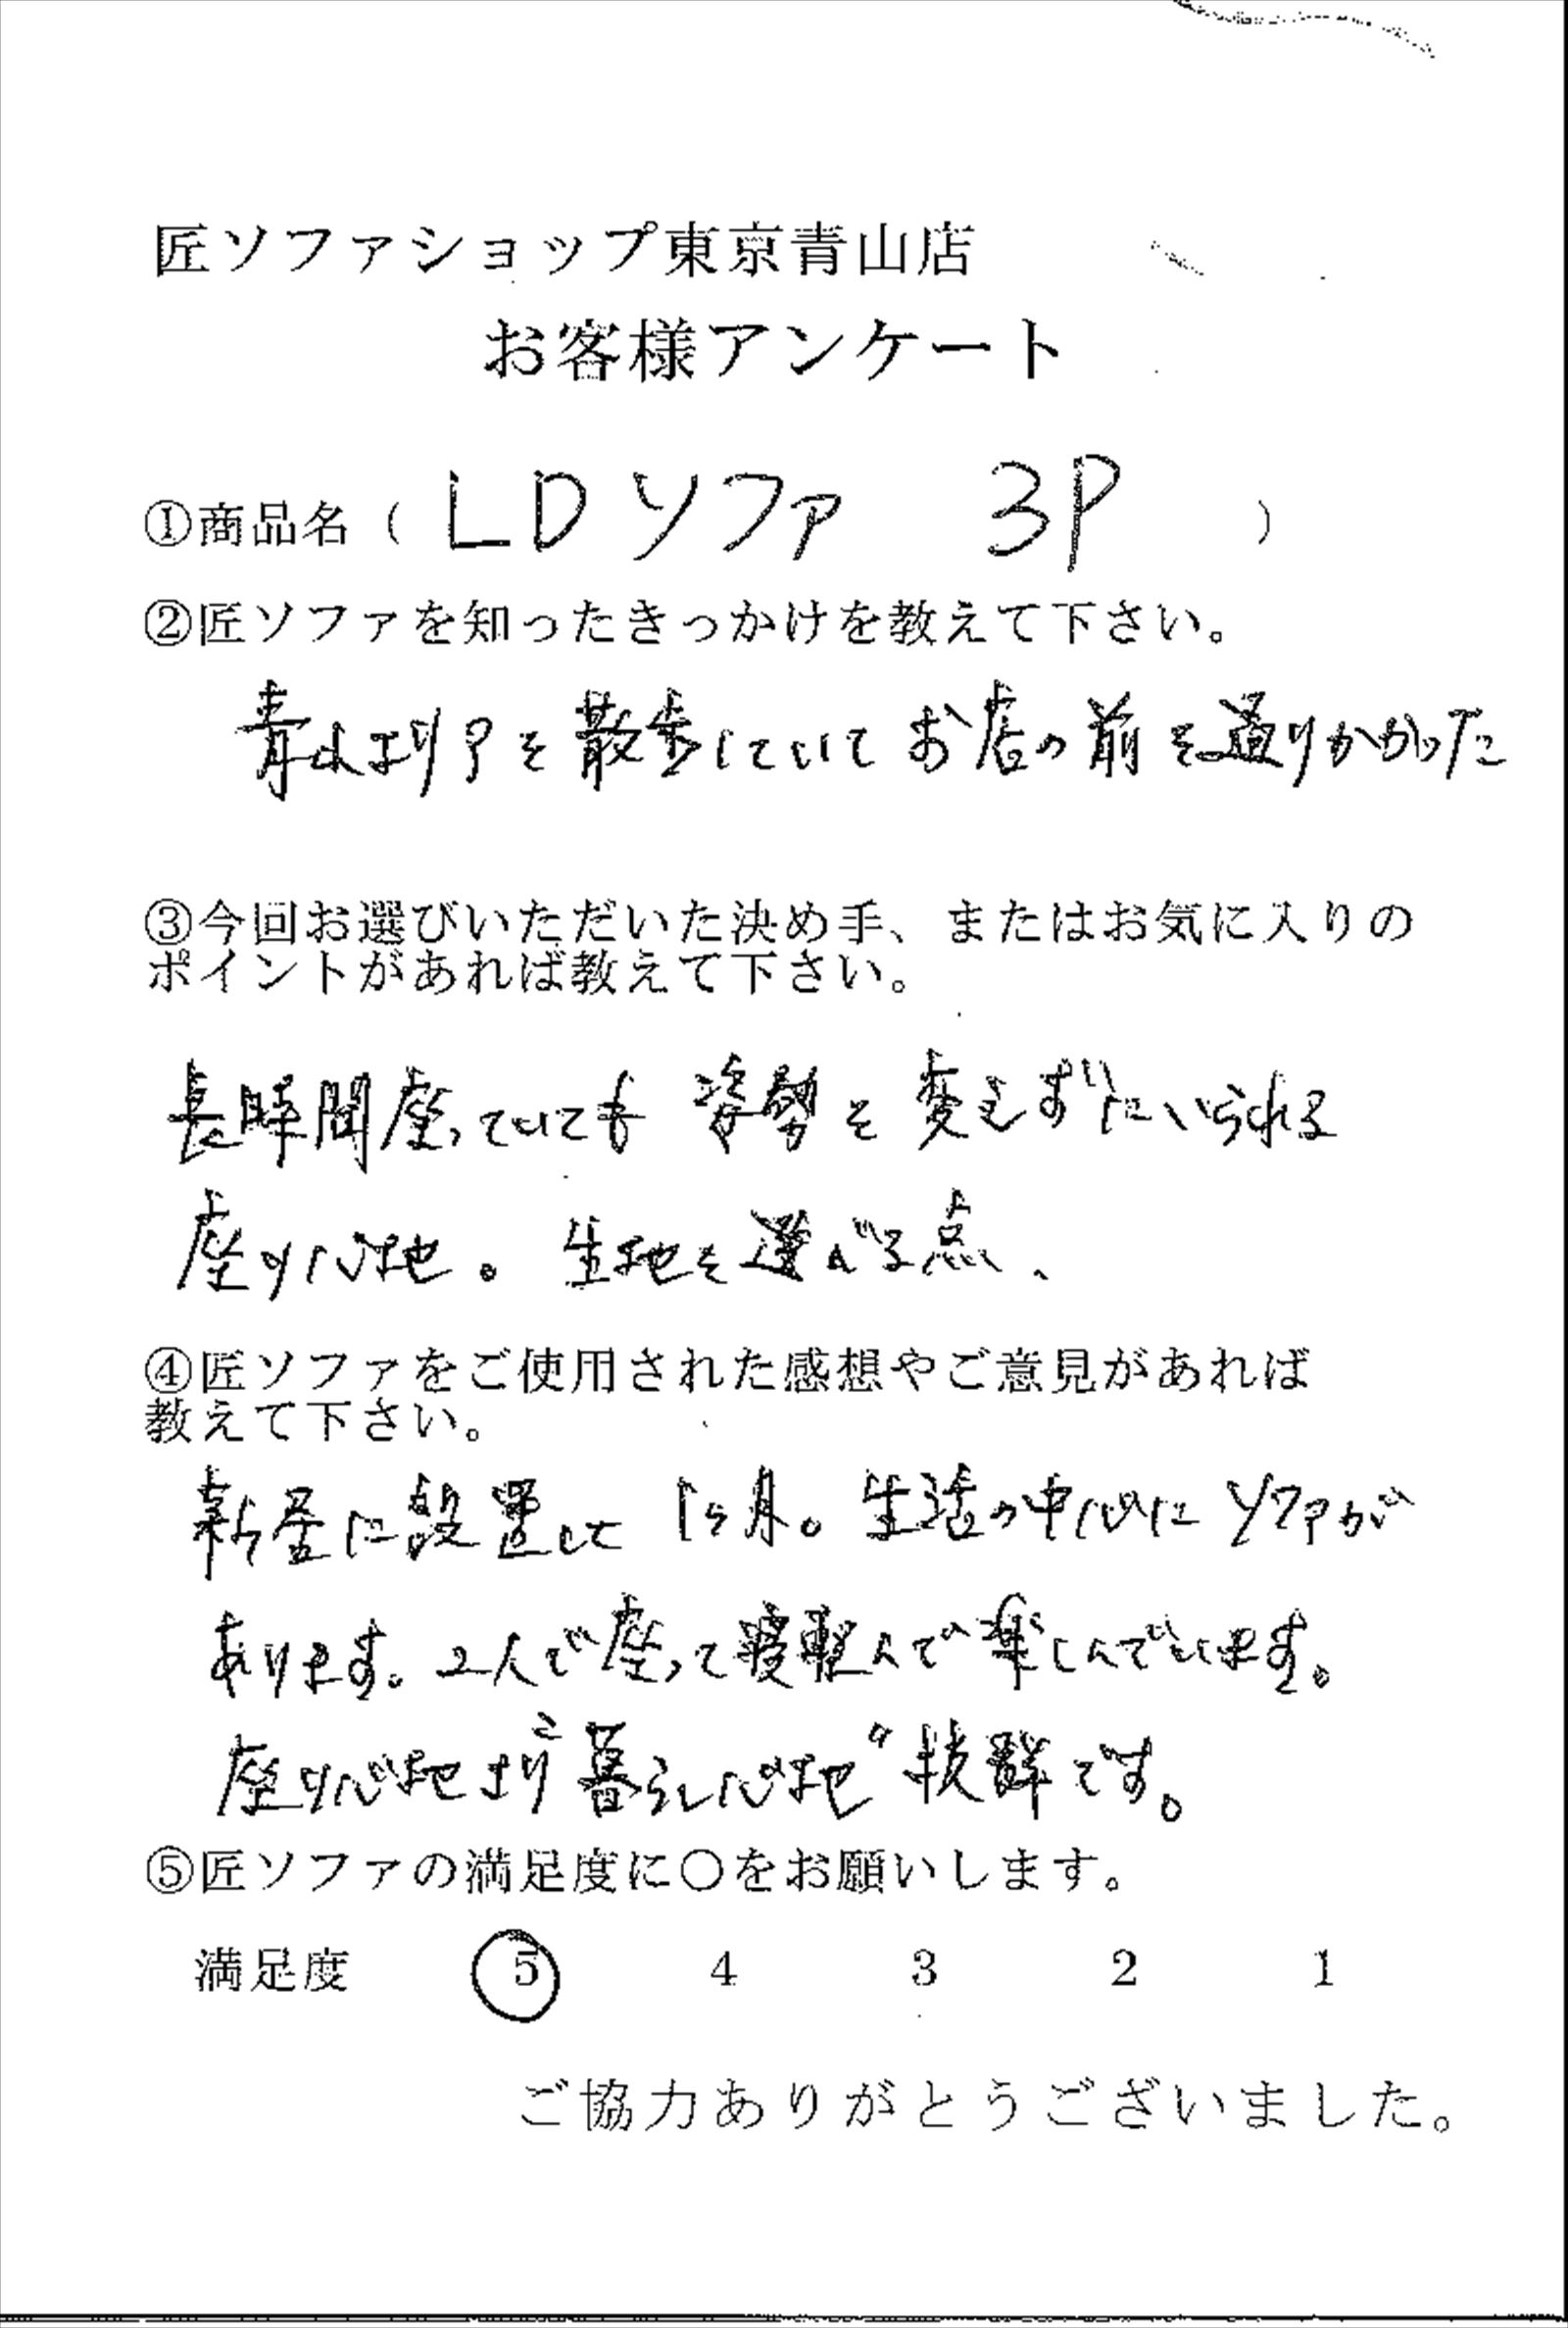 匠ソファショップ東京青山店
お客様アンケート
①商品名（ LDソファ 3P ）
②匠ソファを知ったきっかけを教えて下さい。
青山エリアを散歩していてお店の前を通りかかった
③今回お選びいただいた決め手、またはお気に入りの
ポイントがあれば教えて下さい。
長時間座っていても姿勢を変えずにいられる
座り心地。生地を選べる点、
④匠ソファをご使用された感想やご意見があれば
教えて下さい。
新居に設置して1ヶ月。生活の中心にソファが
あります。2人で座って寝転んで楽しんでいます。
座り心地より〝暮らし心地〟抜群です。
⑤匠ソファの満足度に〇をお願いします。
満足度 5 4 3 2 1
ご協力ありがとうございました。